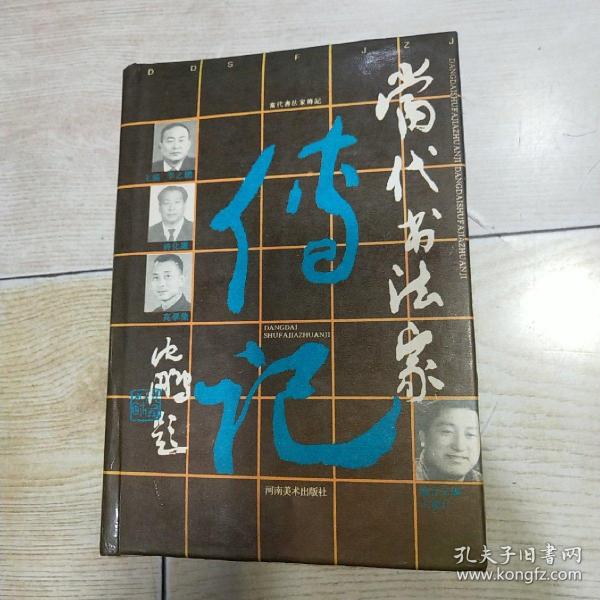 D D S F J Z J
當代書法家傳記
當代书法家
DANGDAISHUFAJIAZHUANJI DANGDAISHUFAJIAZHUANJI
傳
记
DANGDAI
SHUFAJIAZHUANJI
沈鹏题
河南美术出版社
孔夫子旧书网
www.kongfz.com